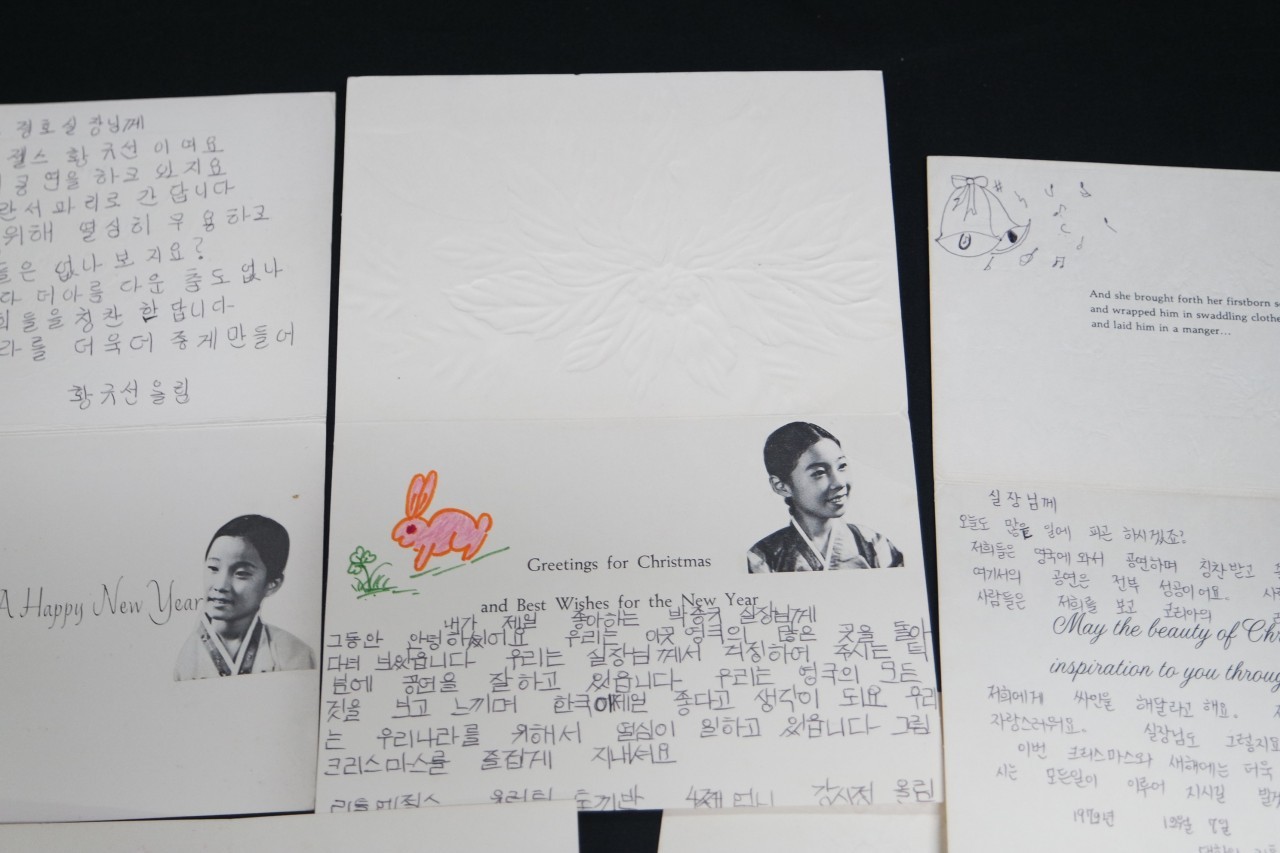 경호실장님께
황규선 이예요
공연을 하고 있지요
파리로 간답니다
위해 열심히 무용하고
들은 없나 보지요?
더아름다운 춤도 없나
희들을 칭찬 한답니다
라를 더욱더 좋게만들어
황규선올림
A Happy New Year
Greetings for Christmas
and Best Wishes for the New Year
내가 제일 좋아하는 박종규 실장님께
그동안 안령하셨어요 우리는 영국의 많은 곳을 돌아
다녀 보았읍니다 우리는 실장님께서 걱정하여 주시는 덕
분에 공연을 잘하고 있읍니다 우리는 영국의 모든
것을 보고 느끼며 한국이제일 좋다고 생각이 되요 우리
는 우리나라를 위해서 열심이 일하고 있읍니다 그럼
크리스마스를 즐겁게 지내셔요
토끼반 올림
And she brought forth her firstborn
and wrapped him in swaddling clothe
and laid him in a manger...
실장님께
오늘도 많은 일에 피곤 하시겠죠?
저희들은 영국에 와서 공연하며 칭찬받고
여기서의 공연은 전부 성공이어요.
사람들은 저희를 보고 코리아의
May the beauty of Ch
inspiration to you throug
저희에게 싸인을 해달라고 해요.
자랑스러워요. 실장님도 그렇지요
이번 크리스마스와 새해에는 더욱
시는 모든일이 이루어 지시길
1979년 12월 7일